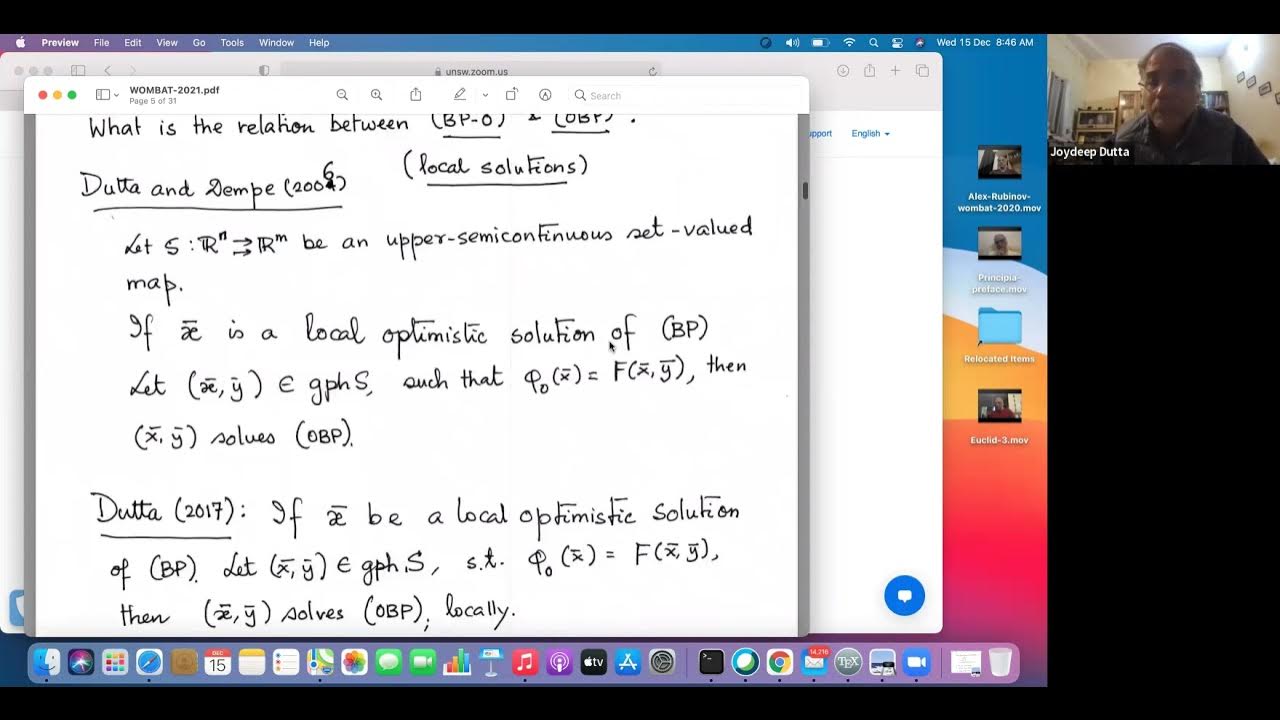 Preview File Edit View Go Tools Window Help
Wed 15 Dec 8:46 AM
unsw.zoom.us
WOMBAT-2021.pdf
Page 5 of 31
Search
English
What is the relation between (BP-O) & (OBP).
(local solutions)
Dutta and Dempe (2006)
Let S : ℝⁿ ⇉ ℝᵐ be an upper-semicontinuous set-valued
map.
If x̄ is a local optimistic solution of (BP)
Let (x̄, ȳ) ∈ gph S, such that φ₀(x̄) = F(x̄, ȳ), then
(x̄, ȳ) solves (OBP).
Dutta (2017): If x̄ be a local optimistic solution
of (BP). Let (x̄, ȳ) ∈ gph S, s.t. φ₀(x̄) = F(x̄, ȳ),
then (x̄, ȳ) solves (OBP), locally.
Joydeep Dutta
Alex-Rubinov-
wombat-2020.mov
Principia-
preface.mov
Relocated Items
Euclid-3.mov
DEC
15
tv
14,216
TEX